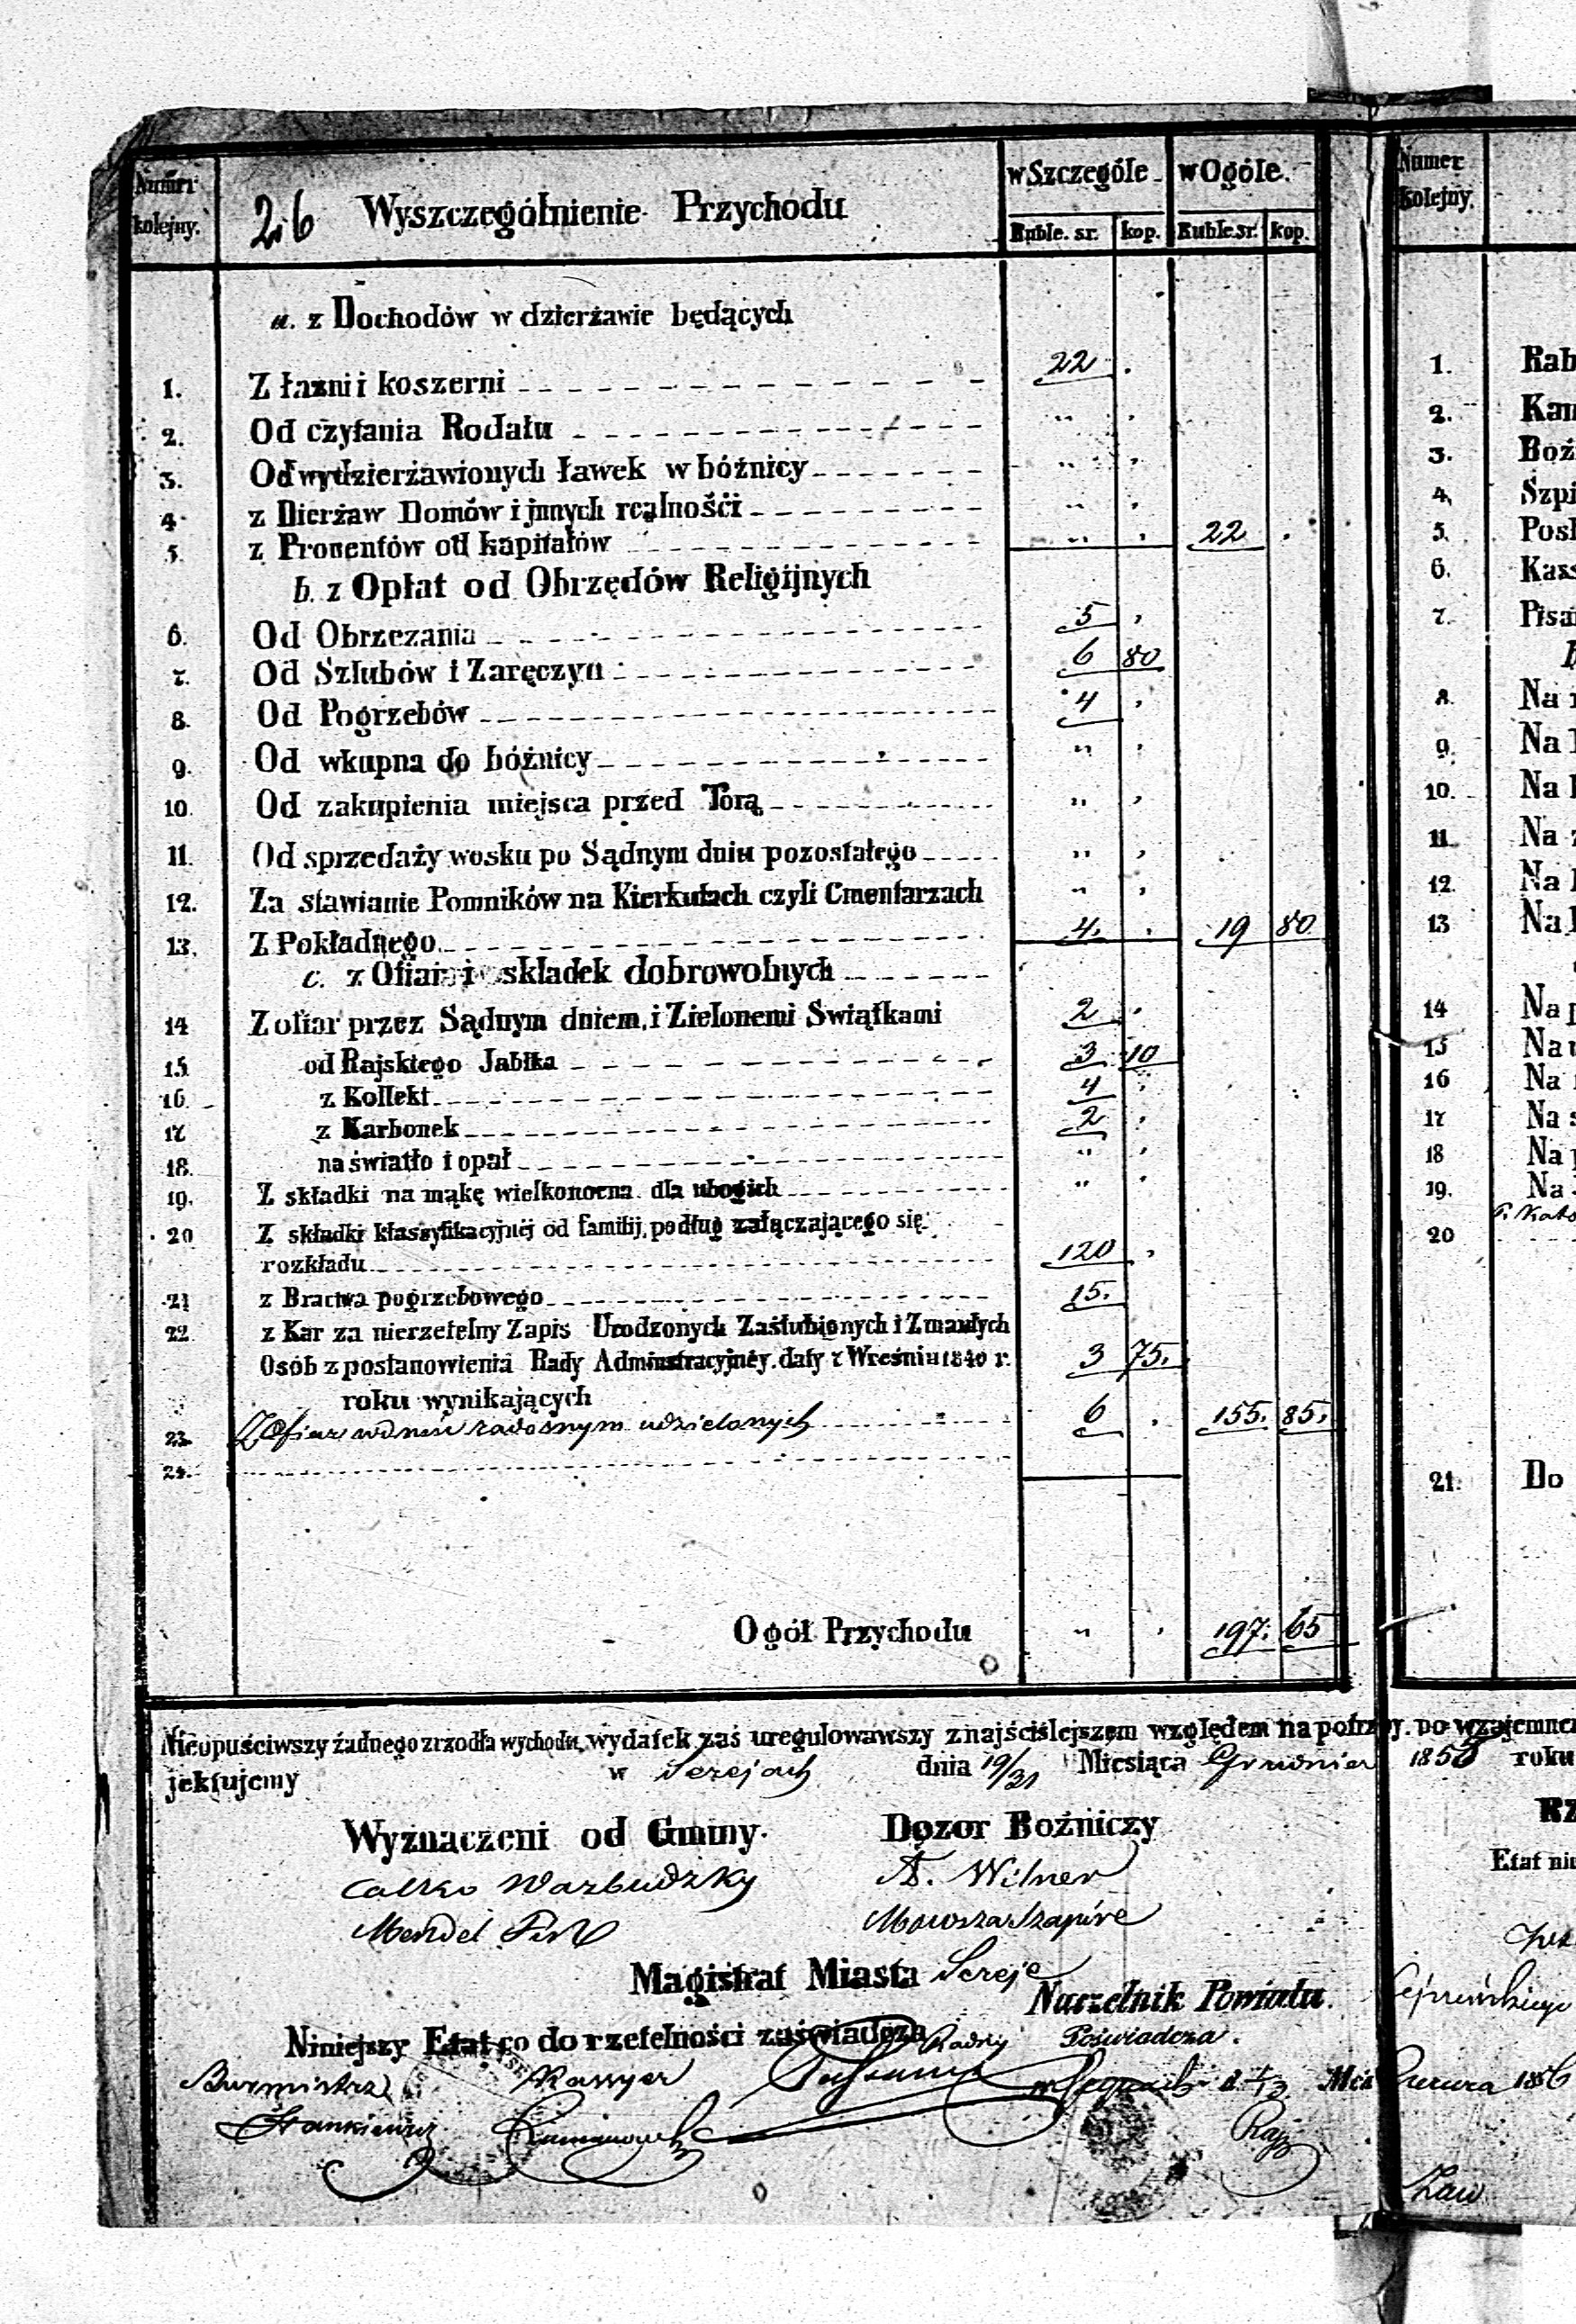 Numer kolejny. 26 Wyszczególnienie Przychodu w Szczególe w Ogóle.
Ruble. sr. kop. Ruble sr. kop.
a. z Dochodów w dzierżawie będących
1. Z łaźni i koszerni 22 .
2. Od czytania Rodału " "
3. Od wydzierżawionych ławek w bóżnicy " "
4. z Dierżaw Domów i jnnych realnośći " "
5. z Procentów od kapitałów " " 22 .
b. z Opłat od Obrzędów Religijnych
6. Od Obrzezania 5 "
7. Od Szlubów i Zaręczyn 6 80
8. Od Pogrzebów 4 "
9. Od wkupna do bóżnicy " "
10. Od zakupienia miejsca przed Torą " "
11. Od sprzedaży wosku po Sądnym dniu pozostałego " "
12. Za stawianie Pomników na Kierkutach czyli Cmentarzach " "
13. Z Pokładnego 4. . 19 80
c. z Ofiar i składek dobrowolnych
14 Z ofiar przez Sądnym dniem, i Zielonemi Swiątkami 2 .
15 od Rajskiego Jabłka 3 10
16. z Kollekt 4 "
17 z Karbonek 2 "
18. na światło i opał " "
19. Z składki na mąkę wielkonocna dla ubogich " "
20 Z składki klassyfikacyjnéj od familij, podług załączającego się
rozkładu 120 "
21 z Bractwa pogrzebowego 15.
22 z Kar za nierzetelny Zapis Urodzonych Zaślubionych i Zmarłych
Osób z postanowienia Rady Administracyjnéy. daty 7 Wreśnia 1840 r. 3 75.
roku wynikających
23. Z Ofiar w dniu radosnym udzielanych 6 . 155. 85.
24.
Ogół Przychodu " " 197. 65
Nieopuściwszy źadnego zrzodła wychodu, wydatek zaś uregulowawszy z najściślejszem względem na potrzby. po wzajemne
jektujemy w Serejach dnia 19/31 Miesiąca Grudnia 1855 roku
Wyznaczeni od Gminy. Dozor Bożniczy
Calko Warbudzky A. Wilner
Mendel Mowsza Szapire
Magistrat Miasta Sereje
Naczelnik Powiatu.
Niniejszy Etat co do rzetelności zaświadcza Radny Poświadcza.
Burmistrz Kassyer
Stankiewicz
Numer kolejny.
1. Rab
2. Kan
3. Boź
4. Szpi
5. Posł
6. Kass
7. Pisa
8. Na
9. Na
10. Na
11. Na z
12. Na
13 Na
14 Na p
15 Na
16 Na
17 Na s
18 Na p
19. Na
20
21. Do
RZ
Etat nin